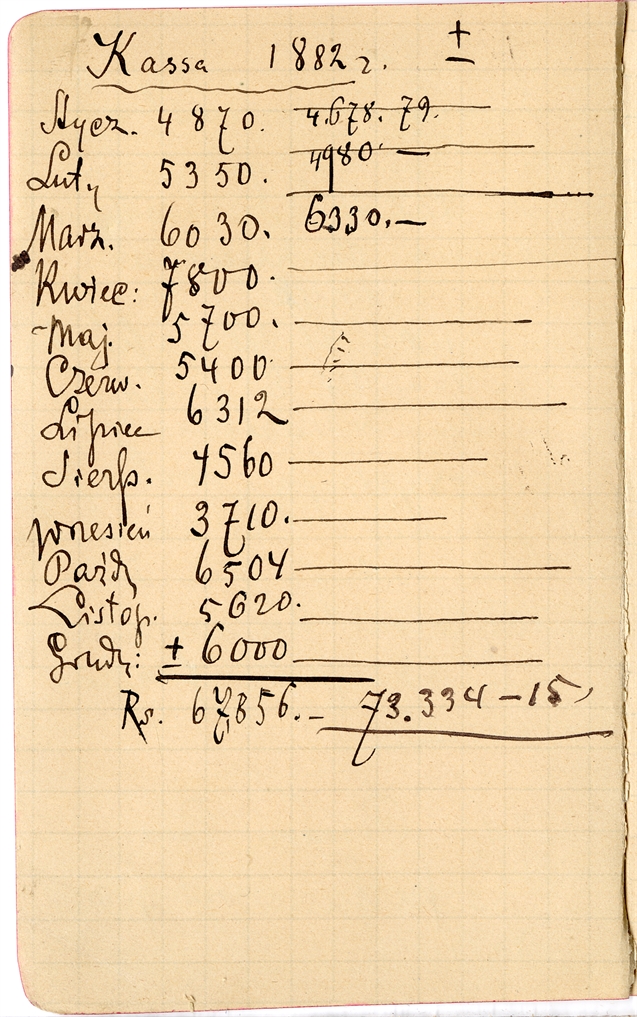 Kassa 1882 r. ±
Stycz. 4870. 4.678.79.
Luty 5350. 4980 —
Marz. 6030. 6330.—
Kwiec: 7800.
Maj. 5700.
Czerw. 5400
Lipiec 6312
Sierp. 4560
Wrzesień 3710.
Paźdz 6504
Listop. 5620.
Grudz: ± 6000
Rs. 67856.— 73.334—15